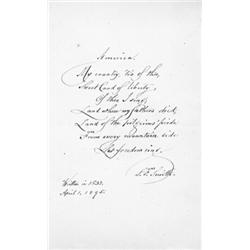 America.
My country, 'tis of thee,
Sweet Land of liberty,
Of thee I sing;
Land where my fathers died,
Land of the pilgrims' pride,
From every mountain side
Let freedom ring.
S. F. Smith.
Written in 1832.
April 1, 1895.